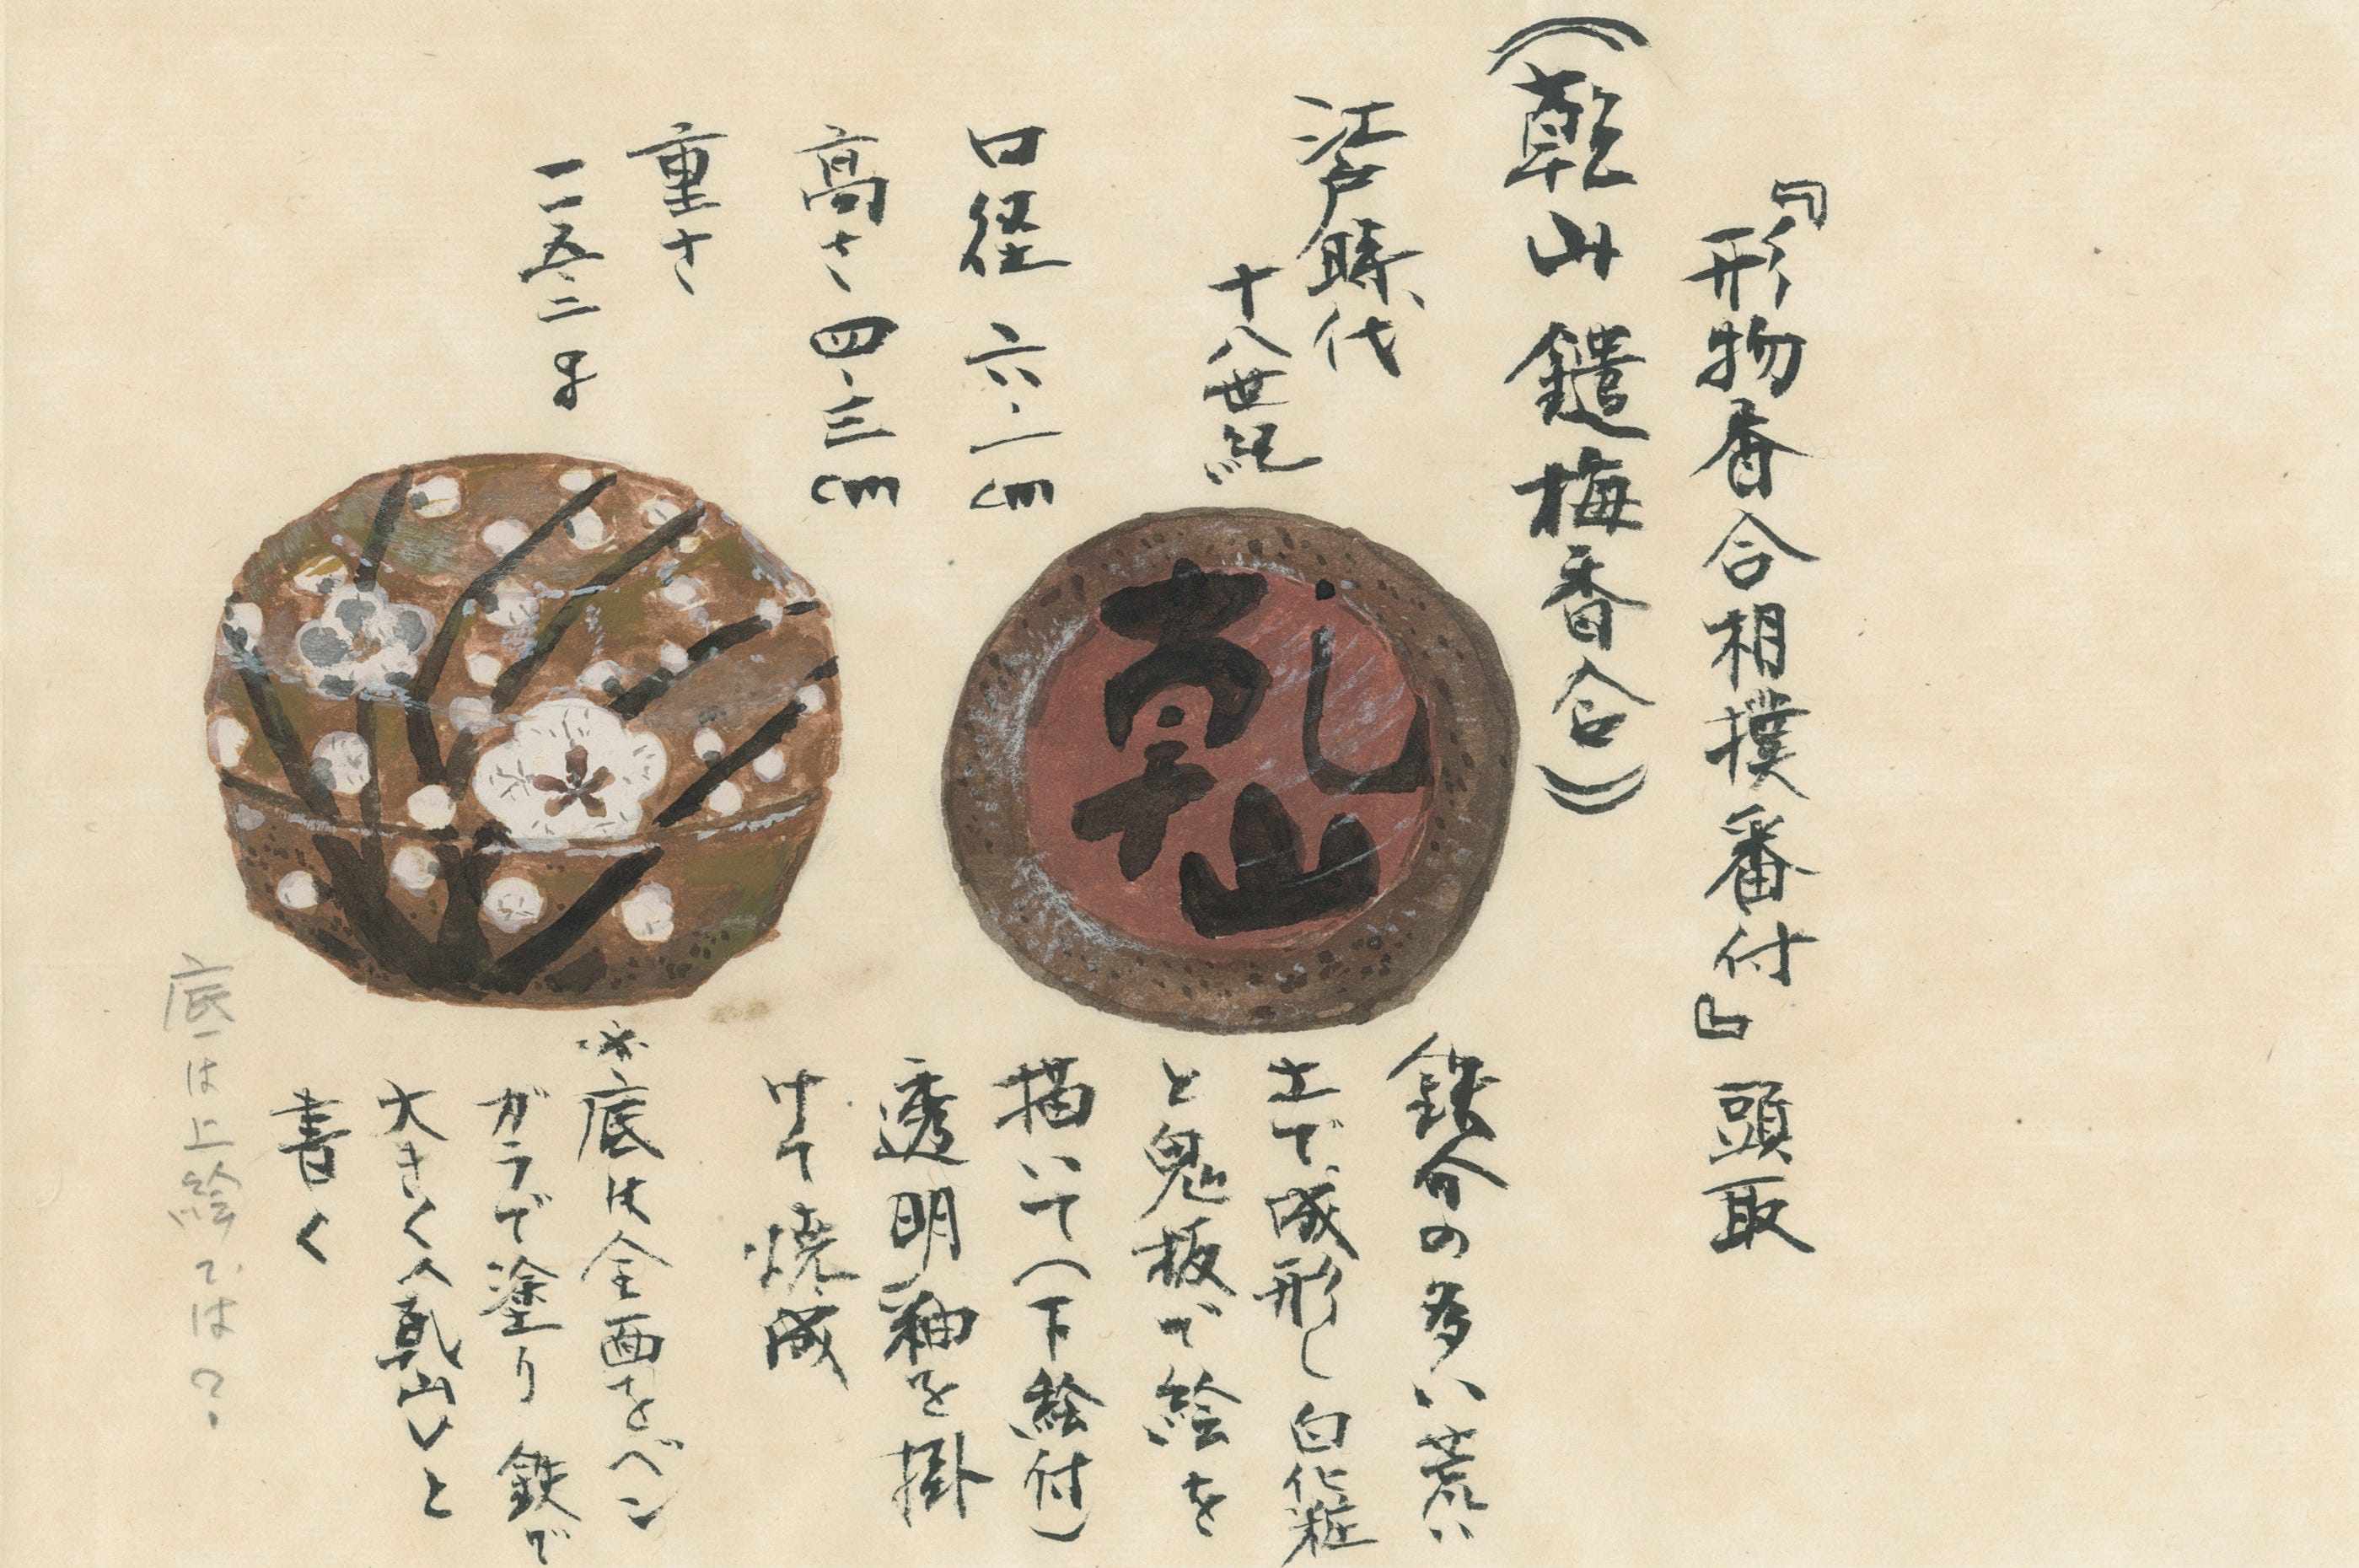 『形物香合相撲番付』頭取
⦅乾山 鑓梅香合⦆
江戸時代
十八世紀
口径 六.一cm
高さ 四.三cm
重さ
一一五.二g
乾山
鉄分の多い荒い
土で成形し白化粧
と鬼板で絵を
描いて（下絵付）
透明釉を掛
けて焼成
※底は全面をベン
ガラで塗り 鉄で
大きく〈乾山〉と
書く
底は上絵では？